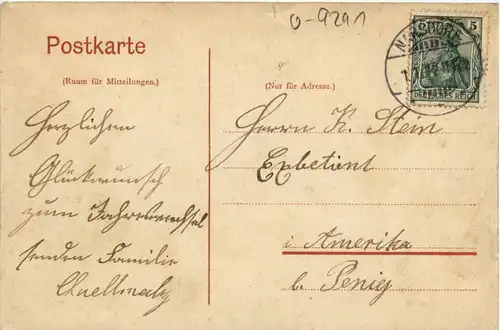 o-9291
Postkarte
(Raum für Mitteilungen.)
(Nur für Adresse.)
5
DEUTSCHES REICH
Herzlichen
Glückwunsch
zum Jahreswechsel
senden Familie
Herrn K. Stein
i Amerika
b. Penig